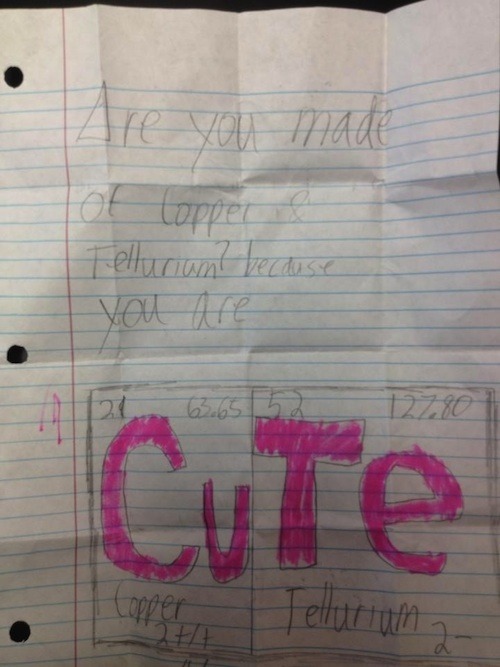 Are you made
of Copper &
Tellurium? because
you are
63.65 52 127.80
CuTe
Copper Tellurium
2+/+ 2-